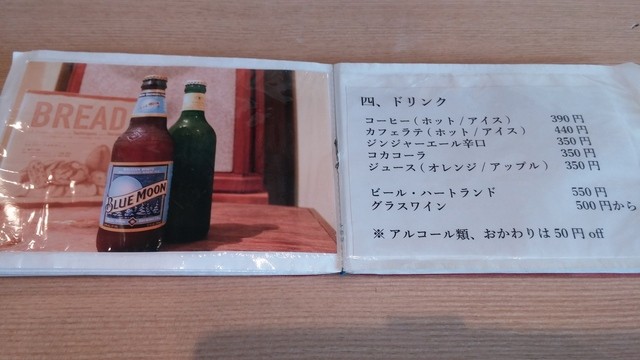 BREAD
BLUE MOON
四、ドリンク
コーヒー(ホット/アイス) 390円
カフェラテ(ホット/アイス) 440円
ジンジャーエール辛口 350円
コカコーラ 350円
ジュース(オレンジ/アップル) 350円
ビール・ハートランド 550円
グラスワイン 500円から
※アルコール類、おかわりは50円off